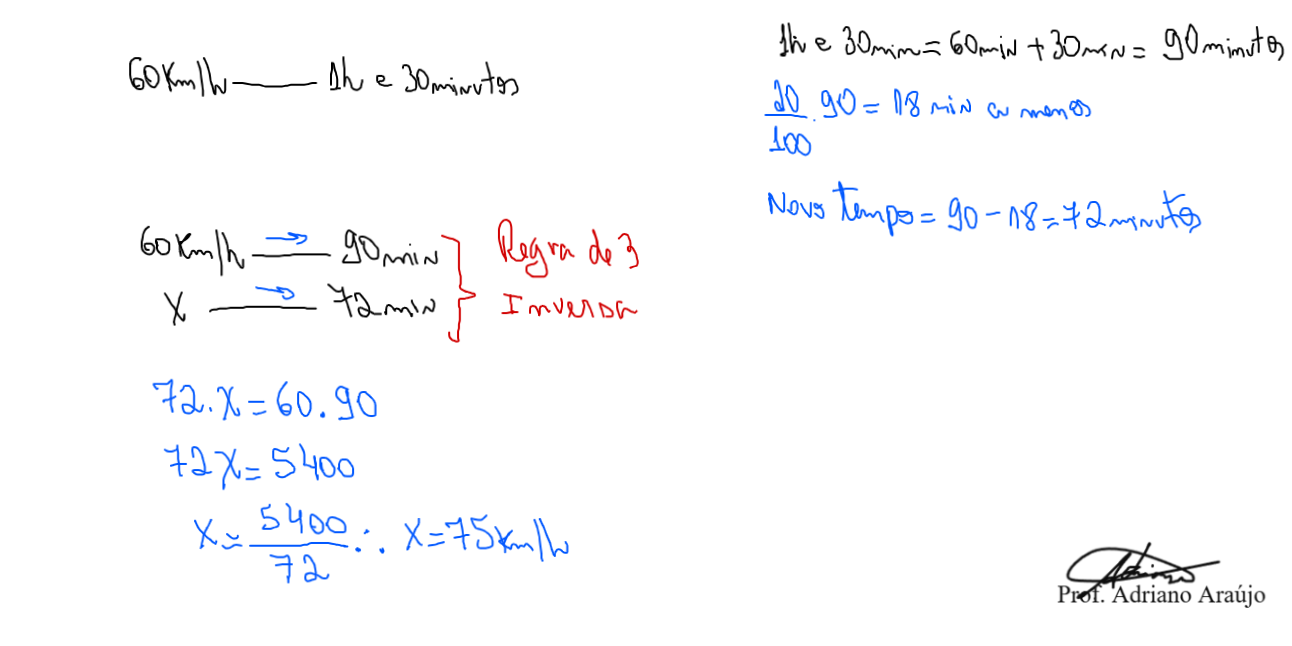 60Km/h — 1h e 30minutos
1h e 30min = 60min + 30min = 90minutos
20/100 . 90 = 18 min a menos
Novo tempo = 90 - 18 = 72minutos
60Km/h → 90min
X → 72min
Regra de 3
Inversa
72.X = 60.90
72X = 5400
X = 5400/72 ∴ X = 75Km/h
Prof. Adriano Araújo